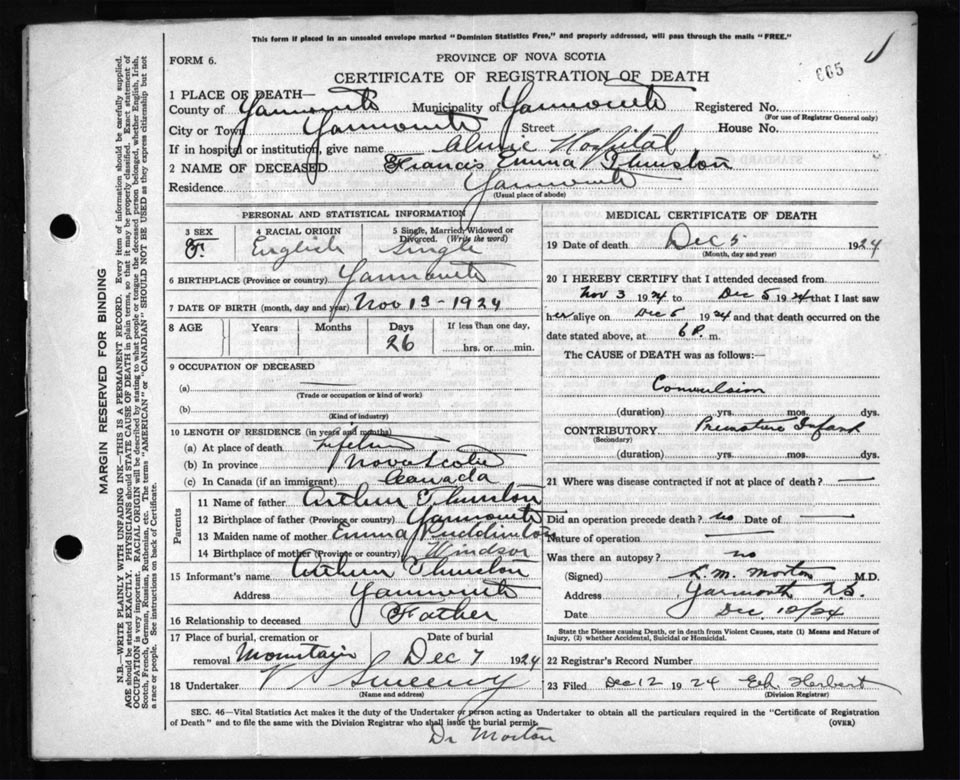 This form if placed in an unsealed envelope marked "Dominion Statistics Free," and properly addressed, will pass through the mails "FREE."
FORM 6.
PROVINCE OF NOVA SCOTIA
665
CERTIFICATE OF REGISTRATION OF DEATH
1 PLACE OF DEATH—
County of Yarmouth Municipality of Yarmouth Registered No.
(For use of Registrar General only)
City or Town Yarmouth Street House No.
If in hospital or institution, give name Hospital
2 NAME OF DECEASED Francis Emma Thurston
Residence Yarmouth
(Usual place of abode)
PERSONAL AND STATISTICAL INFORMATION
3 SEX F. 4 RACIAL ORIGIN English 5 Single, Married, Widowed or Divorced. (Write the word) Single
6 BIRTHPLACE (Province or country) Yarmouth
7 DATE OF BIRTH (month, day and year) Nov 13-1924
8 AGE Years Months Days If less than one day,
26 hrs. or min.
9 OCCUPATION OF DECEASED
(a) —
(Trade or occupation or kind of work)
(b)
(Kind of industry)
10 LENGTH OF RESIDENCE (in years and months)
(a) At place of death Lifetime
(b) In province Nova Scotia
(c) In Canada (if an immigrant) Canada
Parents
11 Name of father Arthur Thurston
12 Birthplace of father (Province or country) Yarmouth
13 Maiden name of mother Emma Puddington
14 Birthplace of mother (Province or country) Windsor
15 Informant's name Arthur Thurston
Address Yarmouth
16 Relationship to deceased Father
17 Place of burial, cremation or removal Mountain Date of burial Dec 7 1924
18 Undertaker V S Sweeny
(Name and address)
MEDICAL CERTIFICATE OF DEATH
19 Date of death Dec 5 1924
(Month, day and year)
20 I HEREBY CERTIFY that I attended deceased from
Nov 3 1924 to Dec 5 1924 that I last saw
her alive on Dec 5 1924 and that death occurred on the
date stated above, at 6 P. m.
The CAUSE of DEATH was as follows:—
Convulsion
(duration) yrs. mos. dys.
CONTRIBUTORY Premature Infant
(Secondary)
(duration) yrs. mos. dys.
21 Where was disease contracted if not at place of death? —
Did an operation precede death? no Date of —
Nature of operation —
Was there an autopsy? no
(Signed) L. M. Morton M.D.
Address Yarmouth N.S.
Date Dec 10/24
State the Disease causing Death, or in death from Violent Causes, state (1) Means and Nature of
Injury, (2) whether Accidental, Suicidal or Homicidal.
22 Registrar's Record Number
23 Filed Dec 12 1924 Herbert
(Division Registrar)
SEC. 46—Vital Statistics Act makes it the duty of the Undertaker or person acting as Undertaker to obtain all the particulars required in the "Certificate of Registration
of Death" and to file the same with the Division Registrar who shall issue the burial permit. (OVER)
Dr Morton
MARGIN RESERVED FOR BINDING
N.B.—WRITE PLAINLY WITH UNFADING INK—THIS IS A PERMANENT RECORD. Every item of information should be carefully supplied.
AGE should be stated EXACTLY. PHYSICIANS should STATE CAUSE OF DEATH in plain terms, so that it may be properly classified. Exact statement of
OCCUPATION is very important. RACIAL ORIGIN will be described by stating to what people or tongue the deceased person belonged, whether English, Irish,
Scotch, French, German, Russian, Ruthenian, etc. The terms "AMERICAN" or "CANADIAN" SHOULD NOT BE USED as they express citizenship but not
a race or people. See instructions on back of Certificate.